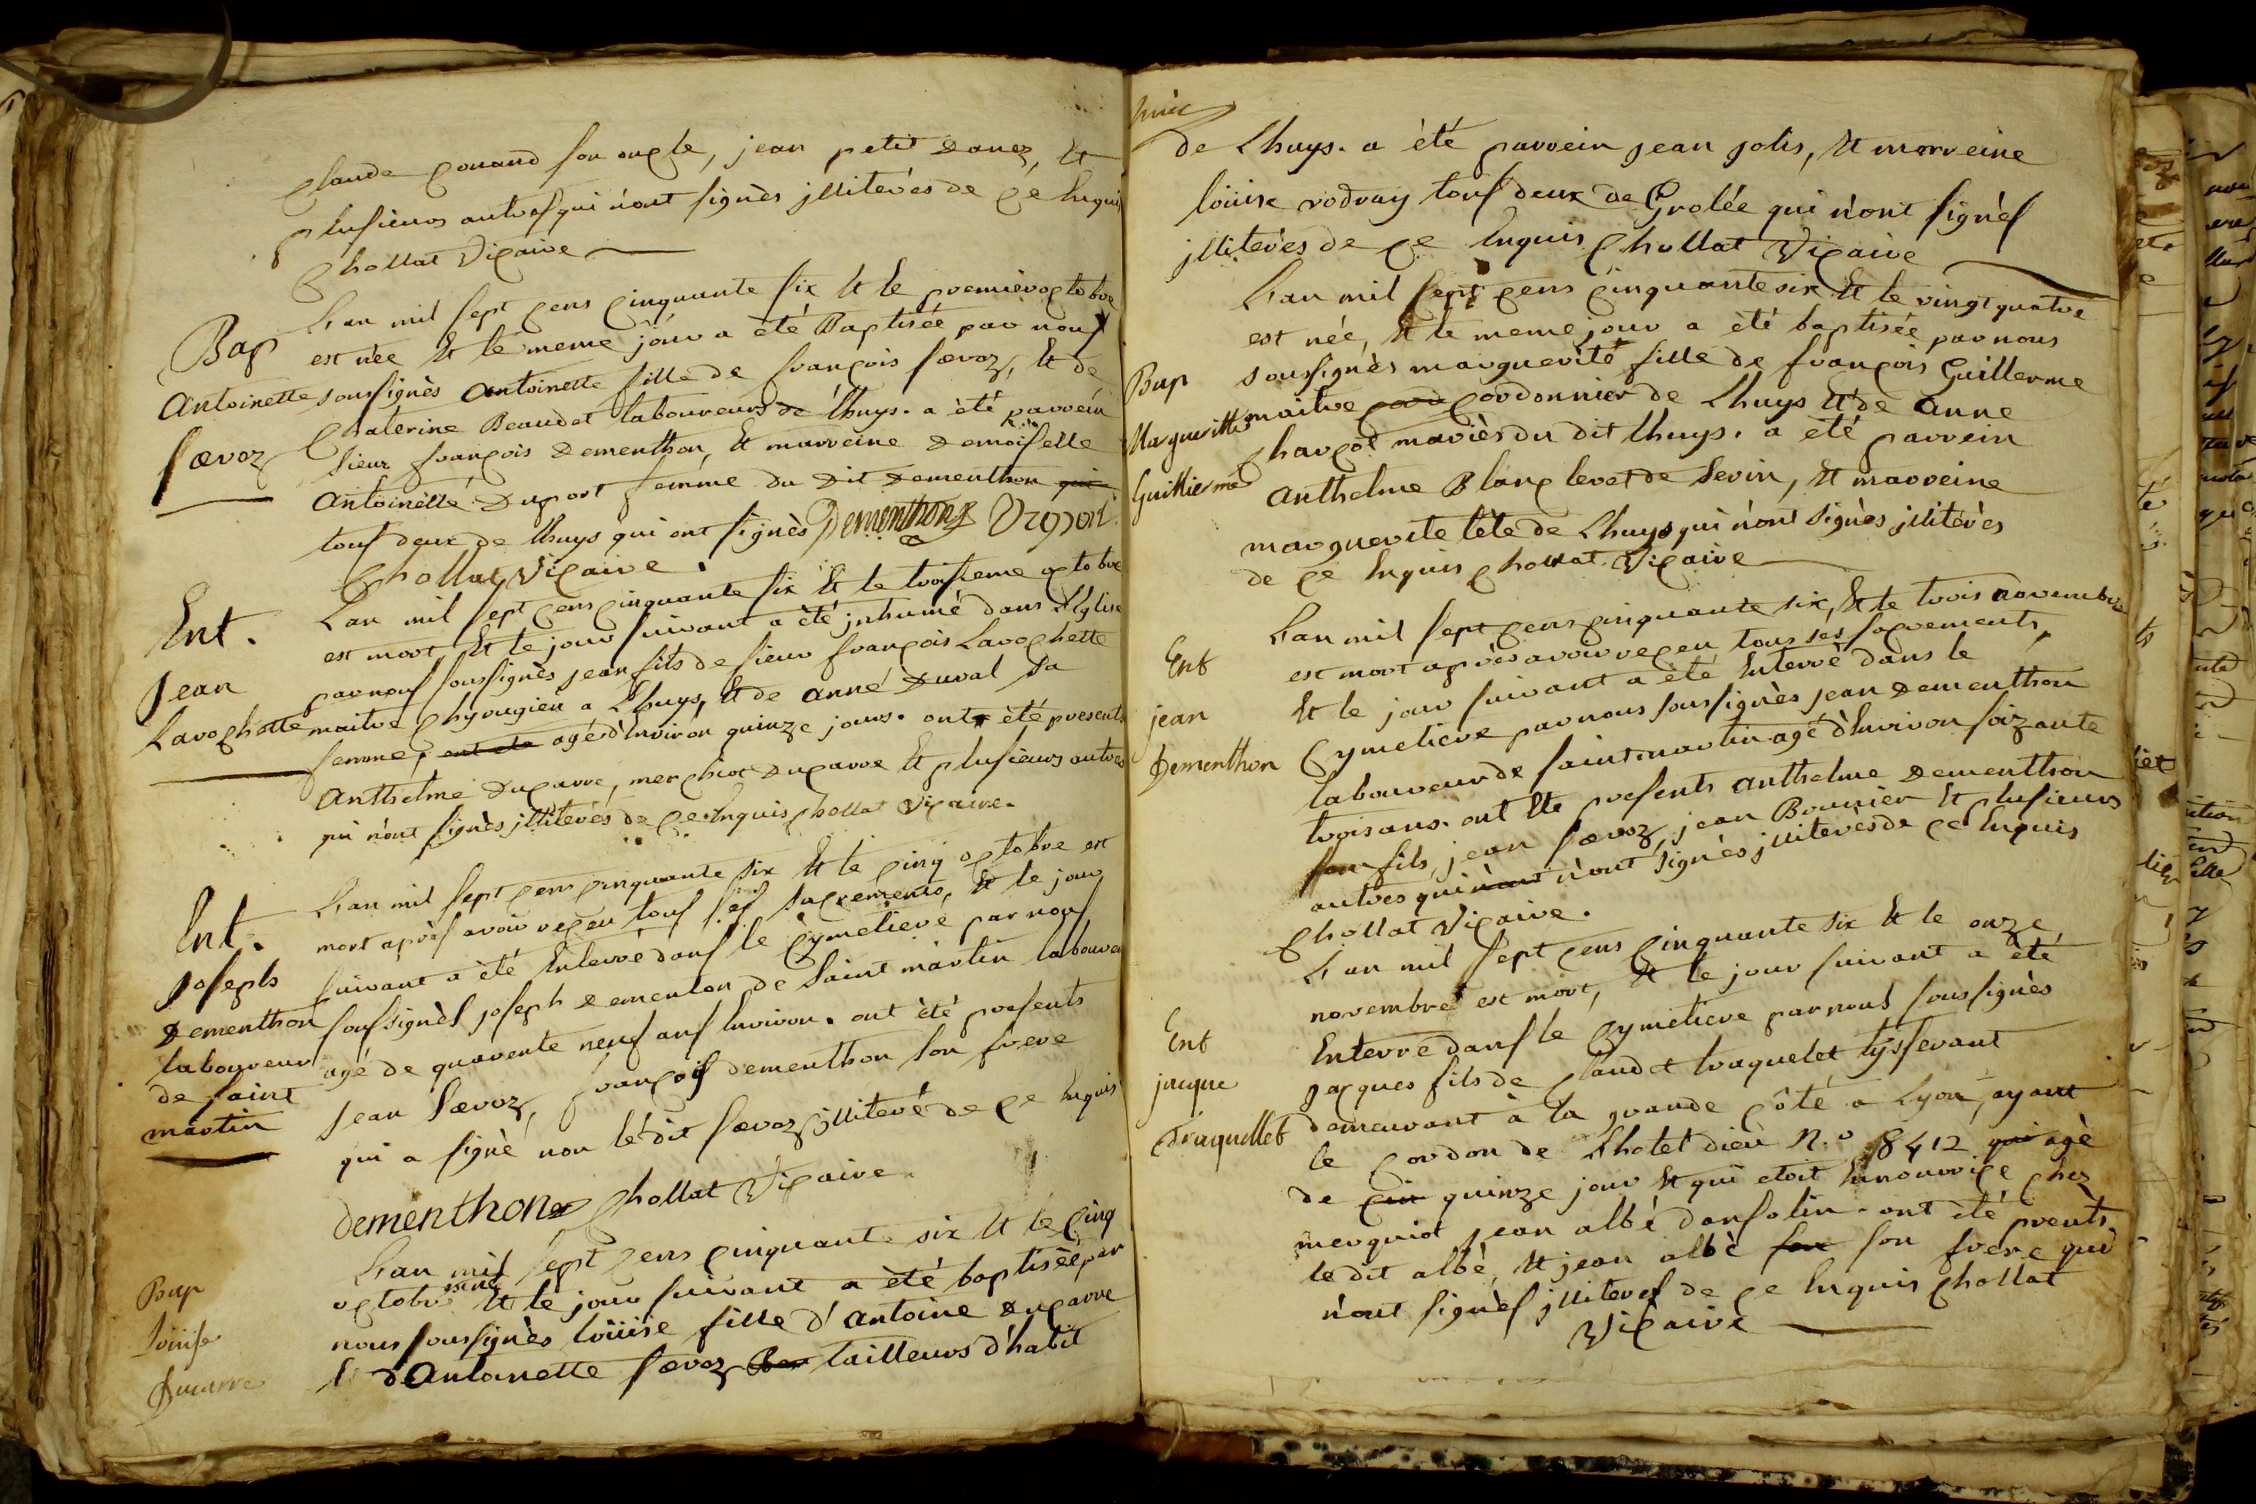 Claude Conand son oncle, jean petit danez, et
plusieurs autres qui n'ont signès jlliterés de ce Enquis
Chollat Vicaire
Bap
Antoinette
særoz
L'an mil sept cens cinquante six et le premier octobre
est nèe et le meme jour a èté Baptisée par nous
soussignès antoinette fille de françois særoz, et de
Chaterine Beaudet laboureurs de lhuys. a èté parrein
sieur françois dementhon, et marreine demoiselle
antoinette duport femme du dit dementhon qui
tous deux de lhuys qui ont signès Dementhon Duport
Chollat Vicaire.
Ent.
Jean
Larochette
L'an mil sept cens cinquante six et le troisieme octobre
est mort, et le jour suivant a èté jnhumè dans l'Eglise
par nous soussignès jean fils de sieur françois Larochette
maitre chyrugien a Lhuys, et de anne duval sa
femme, ont ete agé d'Environ quinze jours. ont èté presents
anthelme ducarre, merchiot ducarre et plusieurs autres
qui n'ont signès jlliterés de ce Enquis Chollat Vicaire.
Ent.
joseph
dementhon
laboureur
de saint
martin
L'an mil sept cens cinquante six et le cinq octobre est
mort après avoir reçeu tous ses sacrements, et le jour
suivant a èté Enterré dans le cymetiere par nous
soussignès joseph dementon de saint martin laboureur
agé de quarente neuf ans Environ. ont èté presents
jean særoz, françois dementhon son frere
qui a signè non le dit særoz jlliteré de ce Enquis
dementhon Chollat Vicaire
Bap
Loüise
Ducarre
L'an mil sept cens cinquante six et le cinq
octobre est née et le jour suivant a èté baptisée par
nous soussignès loüise fille d'antoine ducarre
et d'Antoinette særoz tailleurs d'habit
de Lhuys. a èté parrein jean jolis, et marreine
loüise rodray tous deux de Grolée qui n'ont signès
jlliterès de ce Enquis Chollat Vicaire
Bap
Margueritte
Guillierme
L'an mil sept cens cinquante six et le vingt quatre
est née, et le meme jour a èté baptisée par nous
soussignès marguerite fille de françois Guillerme
maitre cordonnier de Lhuys et de anne
Charcot mariès du dit lhuys. a èté parrein
anthelme Blanc levet de Serin, et marreine
marguerite tète de Lhuys qui n'ont signès jlliterès
de ce Enquis Chollat Vicaire
Ent
jean
Dementhon
L'an mil sept cens cinquante six, et le trois novembre
est mort après avoir reçeu tous ses sacrements,
et le jour suivant a èté Enterré dans le
Cymetiere par nous soussignès jean dementhon
laboureur de saint martin agé d'Environ soizante
trois ans. ont ete presents anthelme dementhon
son fils, jean særoz, jean Bounier et plusieurs
autres qui n'ont n'ont signès jlliterès de ce Enquis
Chollat Vicaire.
Ent
jacque
Traquellet
L'an mil sept cens cinquante six et le onze
novembre est mort, et le jour suivant a èté
Enterré dans le cymetiere par nous soussignès
jacques fils de Claudet traquelet tysserant
demeurant à la grande côté a Lyon, ayant
le cordon de l'hotel dieu N.o 8412 qui agè
de cin quinze jour et qui etoit Ennourrice chez
merquiot jean albè d'ansolin. ont èté prents
le dit albè, et jean albè son son frere qui
n'ont signès jlliterès de ce Enquis Chollat
Vicaire